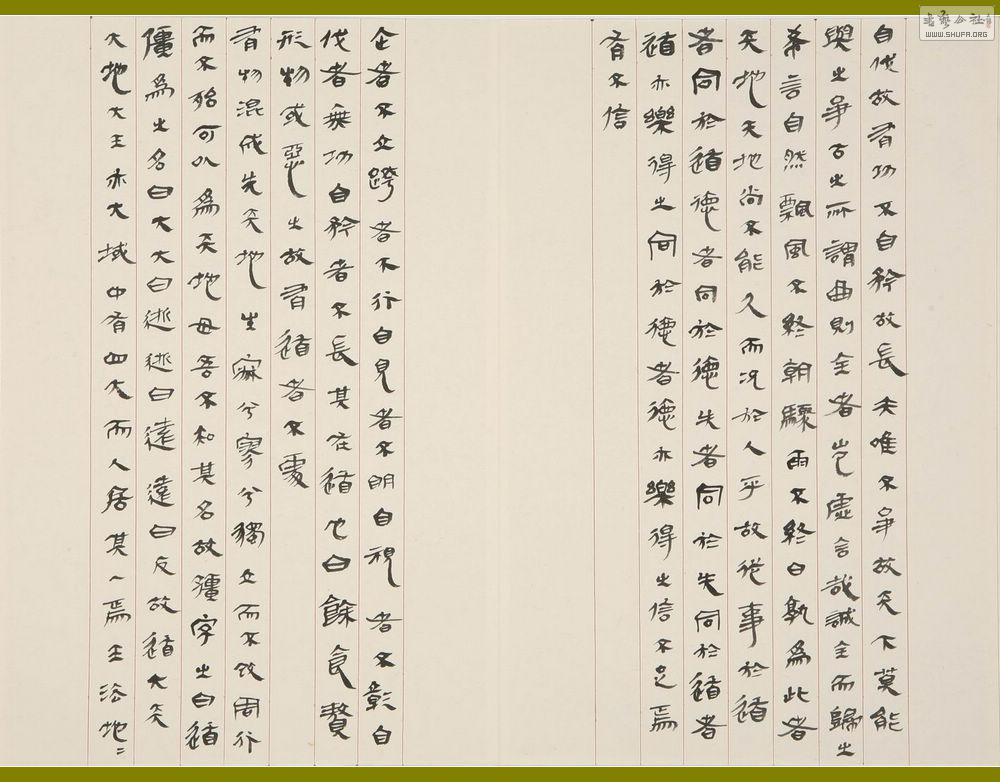 自伐故有功不自矜故長夫唯不爭故天下莫能
與之爭古之所謂曲則全者豈虛言哉誠全而歸之
希言自然飄風不終朝驟雨不終日孰為此者
天地天地尚不能久而況於人乎故從事於道
者同於道德者同於德失者同於失同於道者
道亦樂得之同於德者德亦樂得之信不足焉
有不信
企者不立跨者不行自見者不明自視者不彰自
伐者無功自矜者不長其在道也曰餘食贅
形物或惡之故有道者不處
有物混成先天地生寂兮寥兮獨立而不改周行
而不殆可以為天地母吾不知其名故彊字之曰道
彊為之名曰大大曰逝逝曰遠遠曰反故道大天
大地大王亦大域中有四大而人居其一焉王法地〻
書藝公社
WWW.SHUFA.ORG